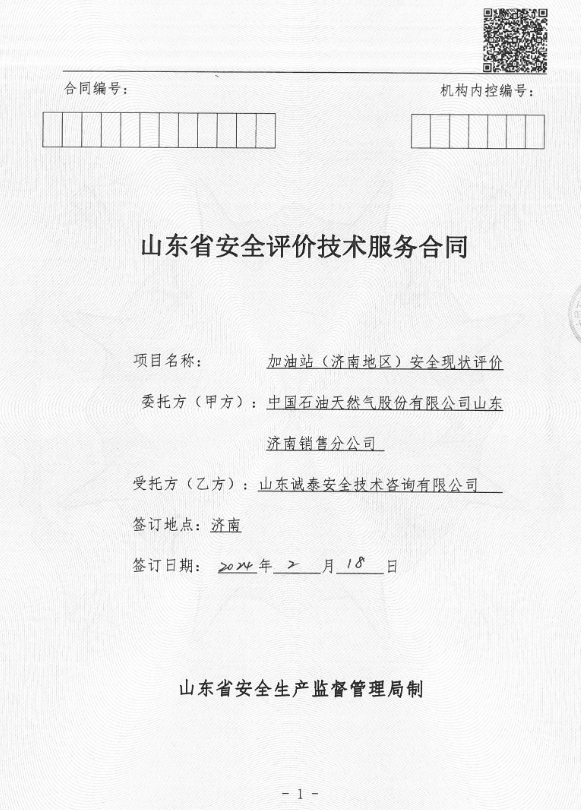 合同编号：
机构内控编号：
山东省安全评价技术服务合同
项目名称： 加油站（济南地区）安全现状评价
委托方（甲方）：中国石油天然气股份有限公司山东
济南销售分公司
受托方（乙方）：山东诚泰安全技术咨询有限公司
签订地点：济南
签订日期： 2024年 2 月 18 日
山东省安全生产监督管理局制
- 1 -